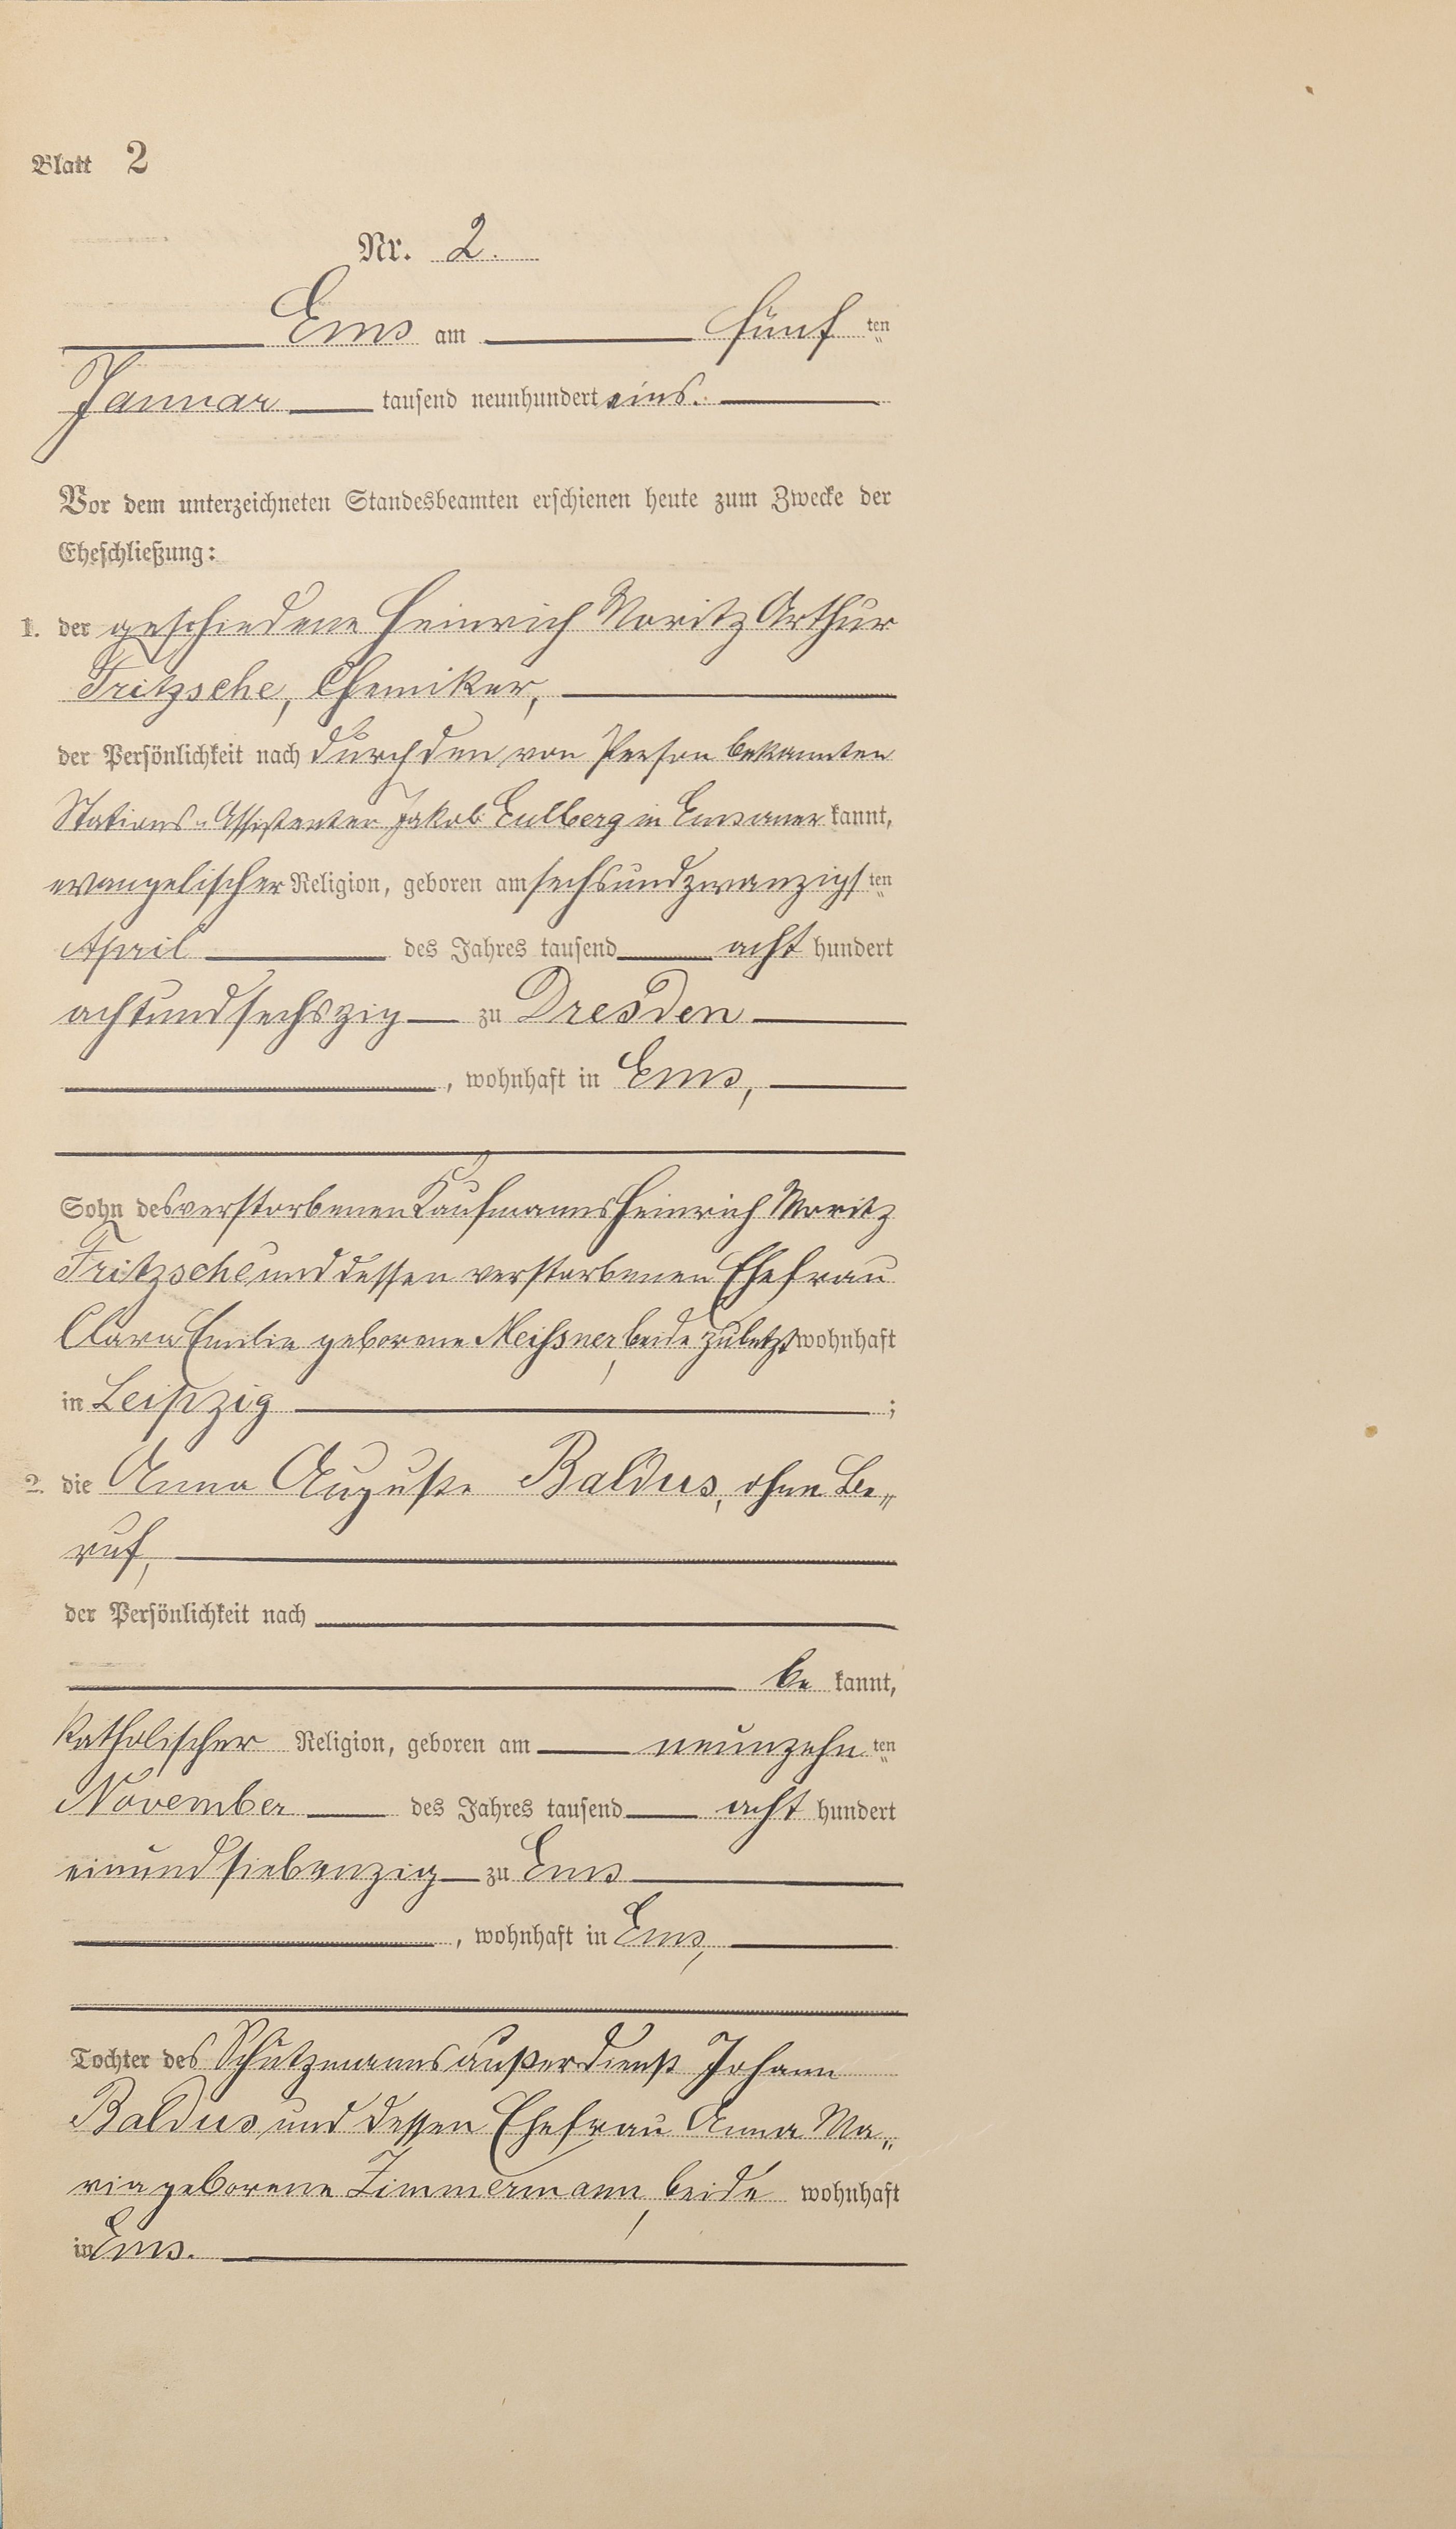 Blatt 2
Nr. 2.
Ems am fünf ten
Januar tausend neunhundert eins.
Vor dem unterzeichneten Standesbeamten erschienen heute zum Zwecke der
Eheschließung:
1. der geschiedene Heinrich Moritz Arthur
Fritzsche, Chemiker,
der Persönlichkeit nach durch den von Person bekannten
Stations-Assistenten Jakob Eulberg in Ems aner kannt,
evangelischer Religion, geboren am sechsundzwanzigs ten
April des Jahres tausend acht hundert
achtundsechszig zu Dresden
, wohnhaft in Ems,
Sohn des verstorbenen Kaufmanns Heinrich Moritz
Fritzsche und dessen verstorbenen Ehefrau
Clara Emilie geborene Meißner, beide zuletzt wohnhaft
in Leipzig ;
2. die Anna Auguste Baldus, ohne Be„
ruf,
der Persönlichkeit nach
be kannt,
katholischer Religion, geboren am neunzehn ten
November des Jahres tausend acht hundert
einundsiebenzig zu Ems
, wohnhaft in Ems,
Tochter des Schutzmanns außer Dienst Johann
Baldus und dessen Ehefrau Anna Ma„
ria geborene Zimmermann, beide wohnhaft
in Ems.